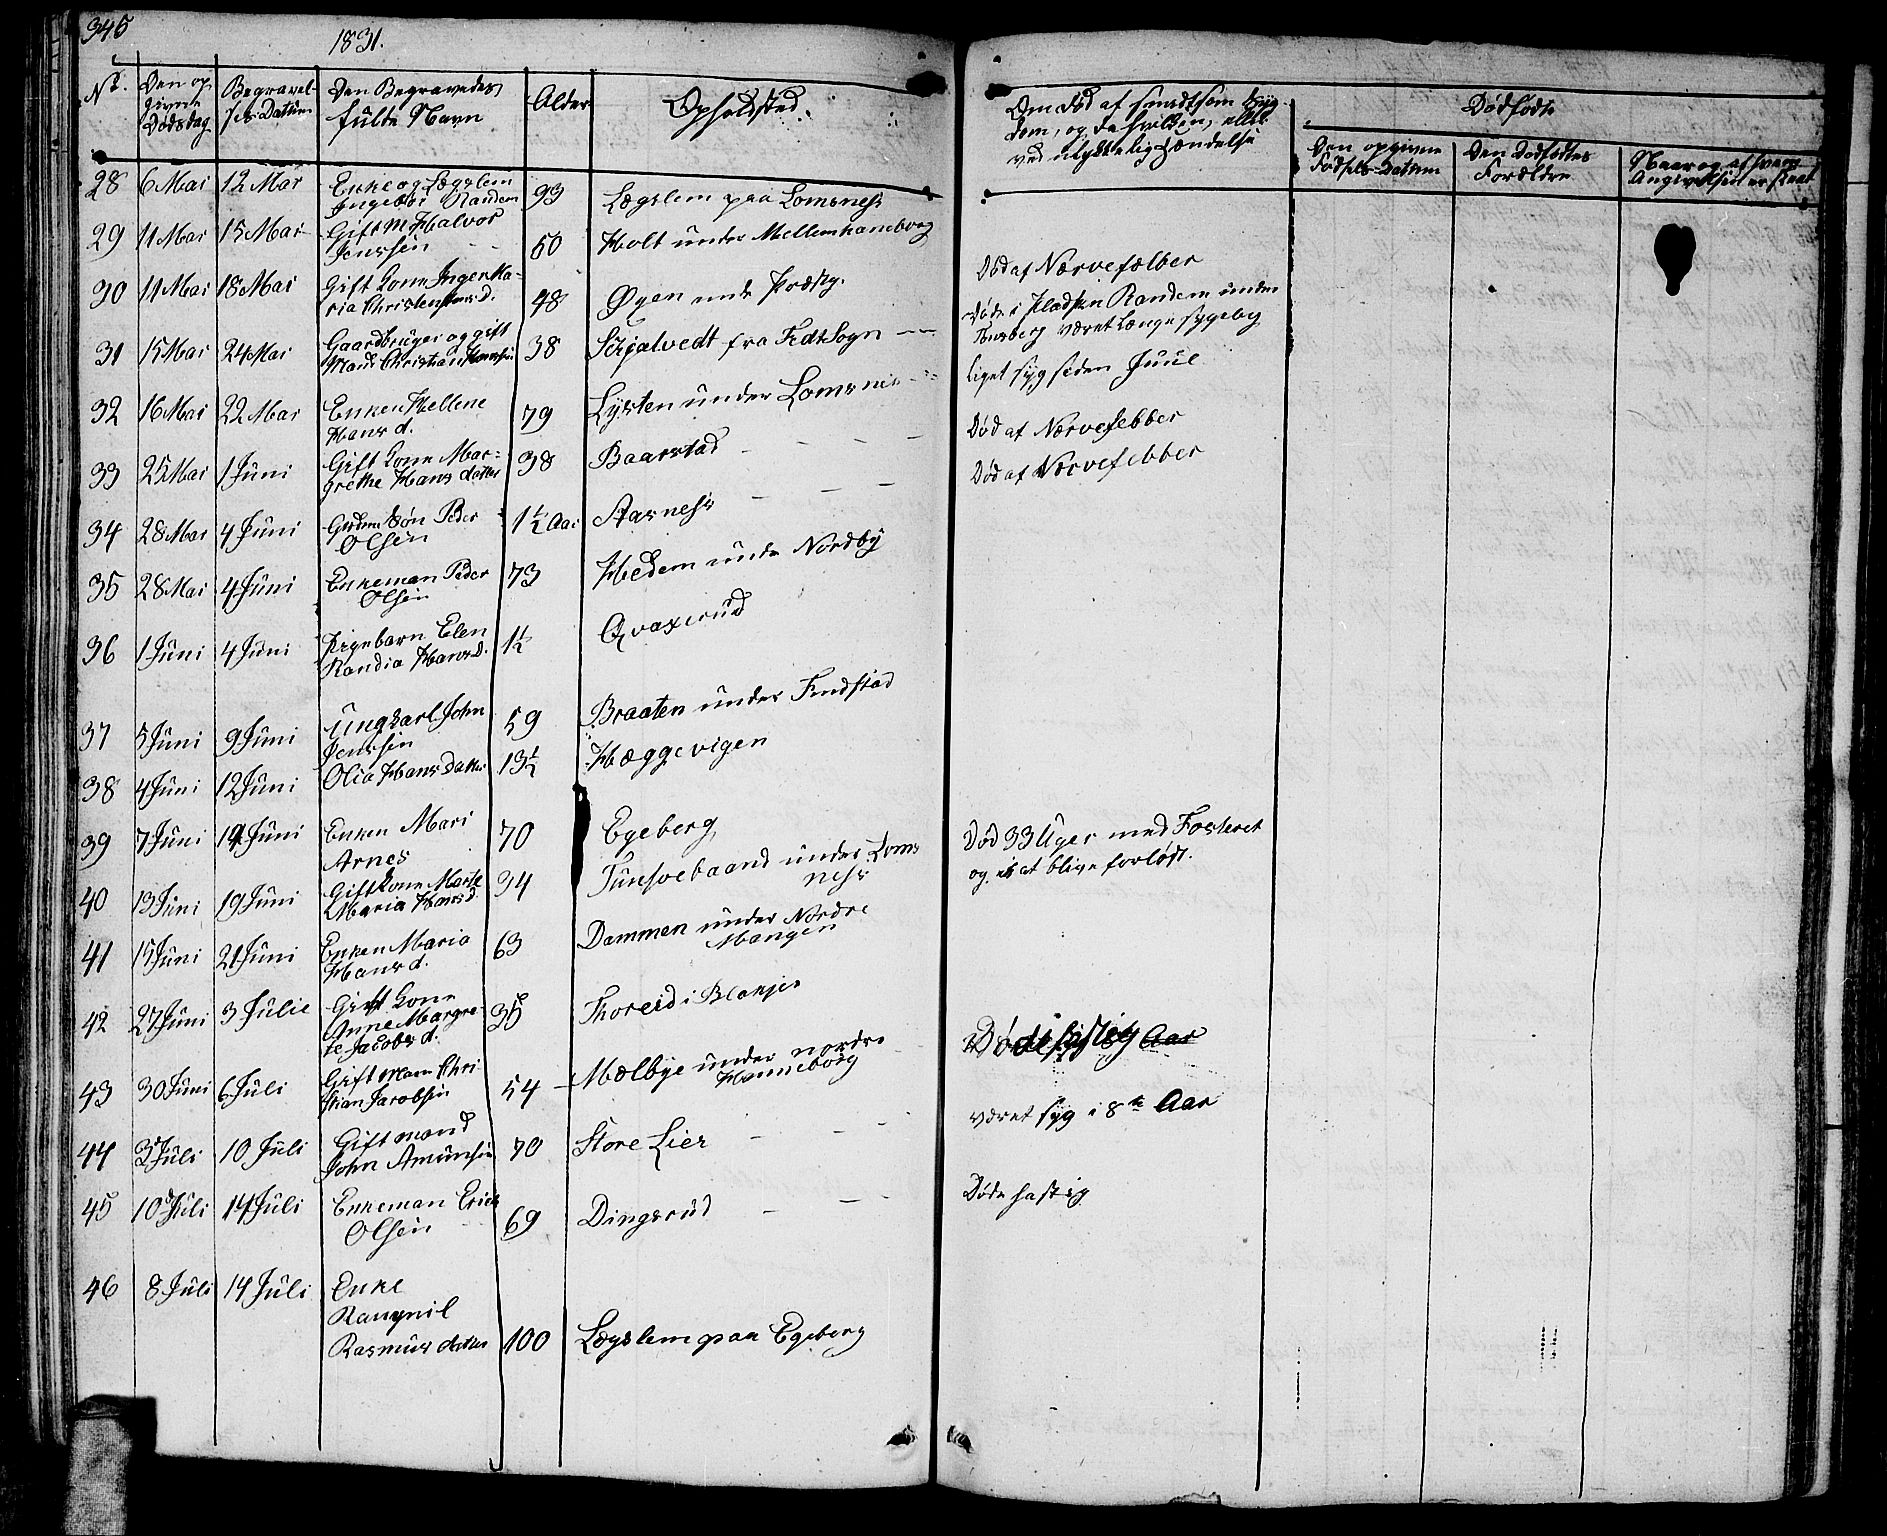 345
1831.
Nr.
Den op
givne
Dødsdag
Begravel-
ses Dattum
Den Begravedes
fulde Navn
Alder
Opholdsted.
Om død af smidtsom Syg-
dom, og da hvilken, eller
ved ulykkelig Hændelse
Dødfødte
Den opgivne
Fødsels-Datum
Den Dødfødtes
Forældre
Naar og af hvem
Angivelsen er skeet
28 6 Mai 12 Mai Enke og Lægslem
Ingebor Randem 93 Lægslem paa Lomsness
29 11 Mai 15 Mai Gift M Halvor
Jenssen 50 Holt under Mellemhaneborg
Død af Nærvefælber
30 11 Mai 18 Mai Gift Kone Inger Ka-
ria Christensens d. 48 Øyen unde Præstg.
Døde i Pladsen Randem under
været Længe sygelig
31 15 Mai 24 Mai Gaardbruger og gift
Mand Christian Hanssen 38 Schjalvedt fra Fedt Sogn
Liget syg siden Juul
32 16 Mai 22 Mai Enken Hellene
Hans d. 79 Lysten under Lomsnes
Død af Nærvefebber
33 25 Mai 1 Juni Gift Kone Mar-
grethe Hans datter 38 Baarstad
Død af Nærvefebber
34 28 Mai 4 Juni Gdm Søn Peder
Olsen 1½ Aar Aarness
35 28 Mai 4 Juni Enkeman Peder
Olsen 73 Hedem unde Nordby
36 1 Juni 4 Juni Pigebarn Elen
Randia Hans D. 1½ Qvaxerud
37 5 Juni 9 Juni Ungkarl John
Jenssen 59 Braaten under Fundstad
38 4 Juni 12 Juni Olia Hans Datter 13½ Hæggevigen
39 7 Juni 14 Juni Enken Mari
Arnes 70 Egeberg
40 13 Juni 19 Juni Gift Kone Marte
Maria Hans d. 34 Tunsvebaand under Loms
ness
Død 33 Uger med Fosteret
og ei at blive forløst.
41 15 Juni 21 Juni Enken Maria
Hans d. 63 Dammen under Nordre
Mangen
42 27 Juni 3 Julie Gift Kone
Anne Margre-
te Jacobs d. 35 Thoreid i Blakjer
Døde hastig Aar
43 30 Juni 6 Juli Gift Man Chri-
stian Jacobsen 54 Mælbye under nordre
Hanneborg
været syg i 8te Aar
44 3 Juli 10 Juli Gift mand
John Amunsen 70 Store Lier
45 10 Juli 14 Juli Enkeman Erick
Olsen 69 Dingsrud
Døde hastig
46 8 Juli 14 Juli Enke
Rangnil
Rasmus datter 100 Lægslem paa Egeberg